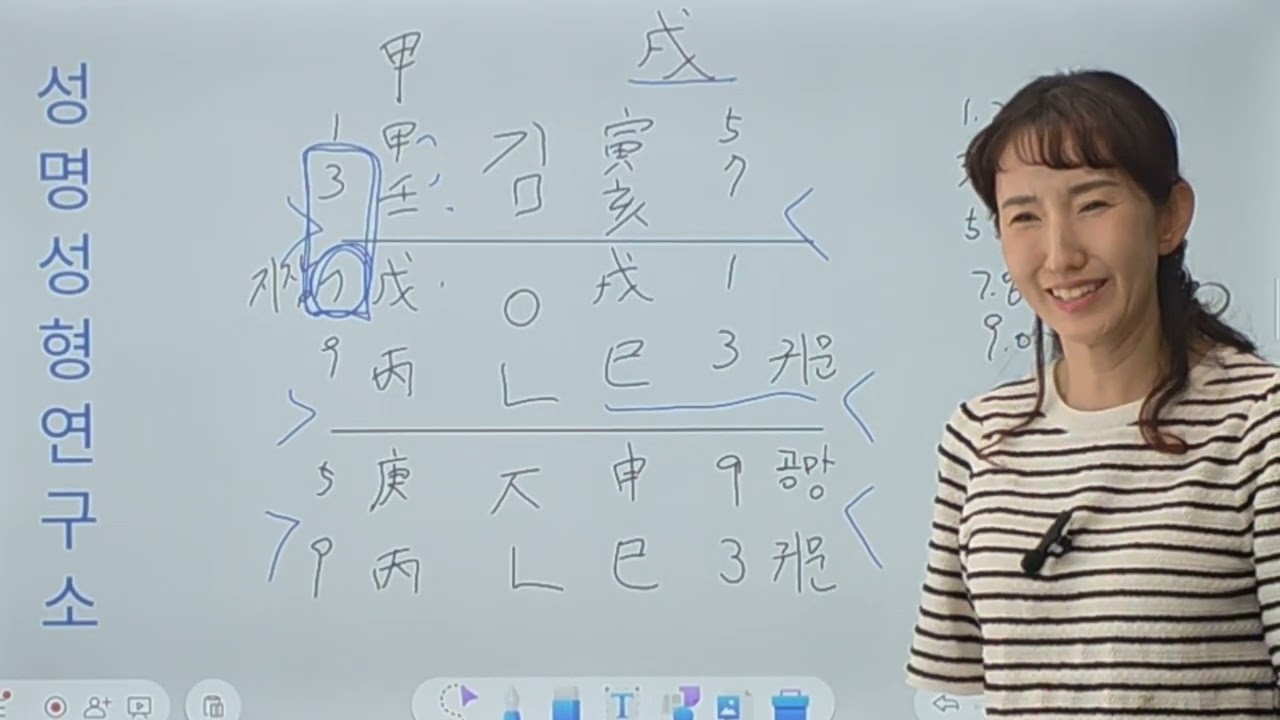 성명성형연구소
甲 戌
1 甲 김 寅 5
3 壬 ㅁ 亥 7
7 戊 ㅇ 戌 1
9 丙 ㄴ 巳 3 귀문
5 庚 ㅈ 申 9 공망
9 丙 ㄴ 巳 3 귀문
1.
5
7.8
9.0